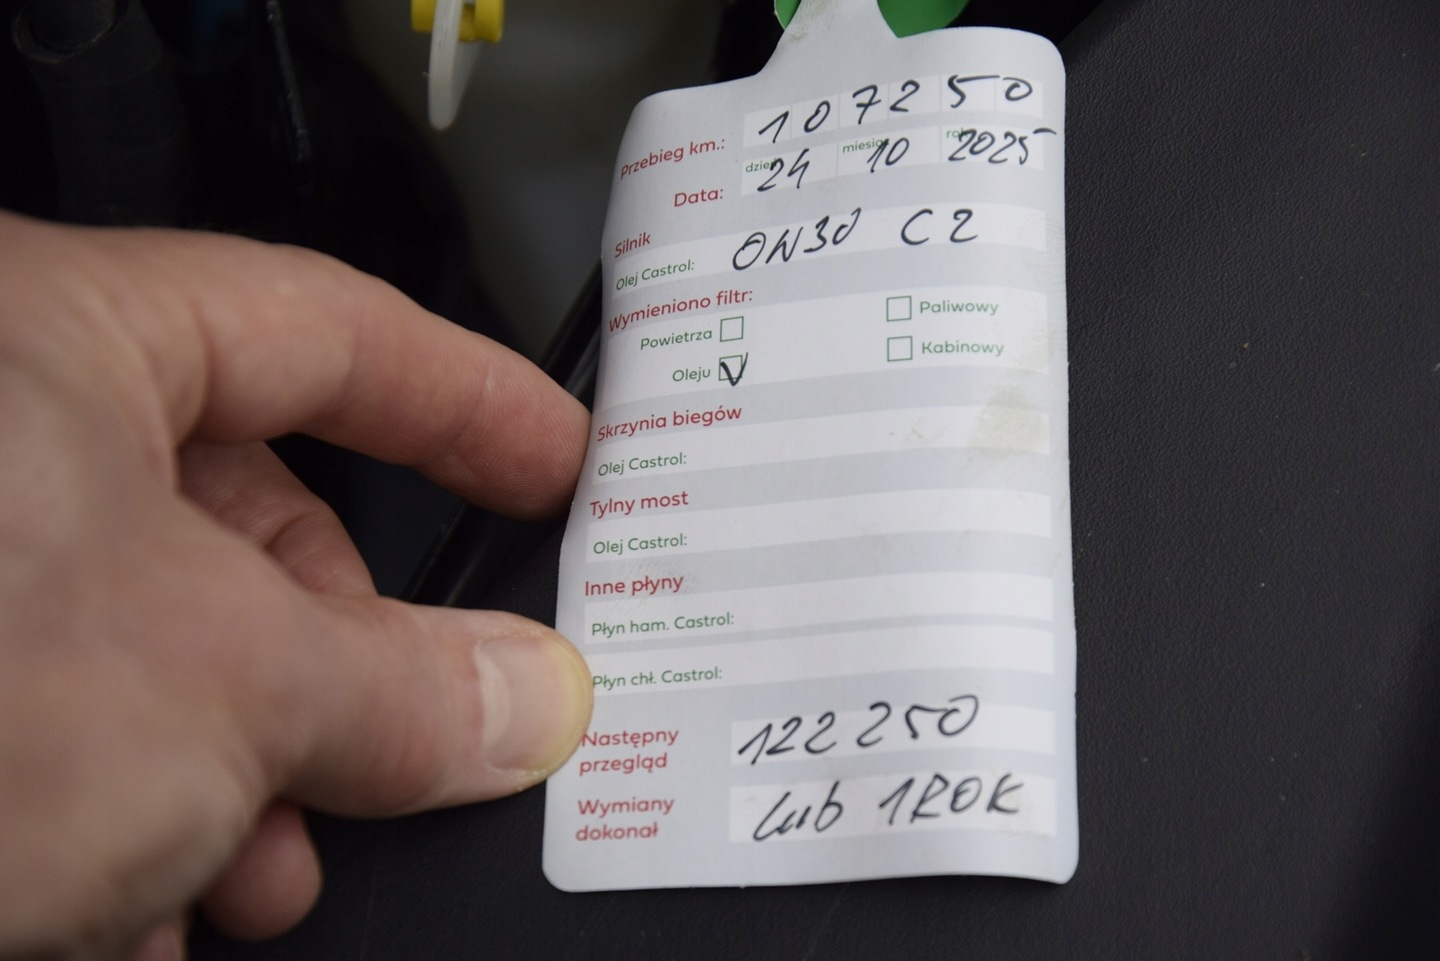 Przebieg km.: 107250
Data: dzień 24 miesiąc 10 rok 2025
Silnik
Olej Castrol: 0W30 C2
Wymieniono filtr:
Powietrza Paliwowy
Oleju V Kabinowy
Skrzynia biegów
Olej Castrol:
Tylny most
Olej Castrol:
Inne płyny
Płyn ham. Castrol:
Płyn chł. Castrol:
Następny przegląd 122250
Wymiany dokonał lub 1ROK